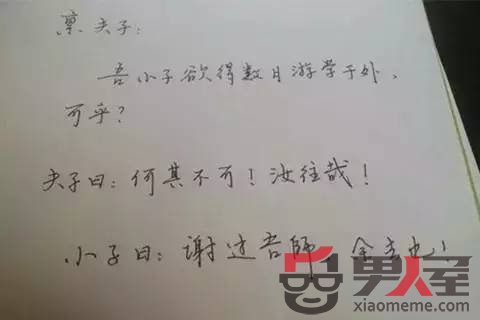 禀夫子:
吾小子欲得数日游学于外,
可乎?
夫子曰:何其不可!汝往哉!
小子曰:谢过吾師,余去也!
男人屋
xiaomeme.com